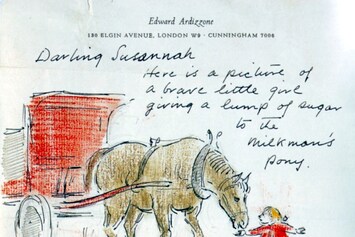 Edward Ardizzone
130 ELGIN AVENUE, LONDON W9 · CUNNINGHAM 7066
Darling Susannah
Here is a picture of
a brave little girl
giving a lump of sugar
to the
Milkman's
Pony.